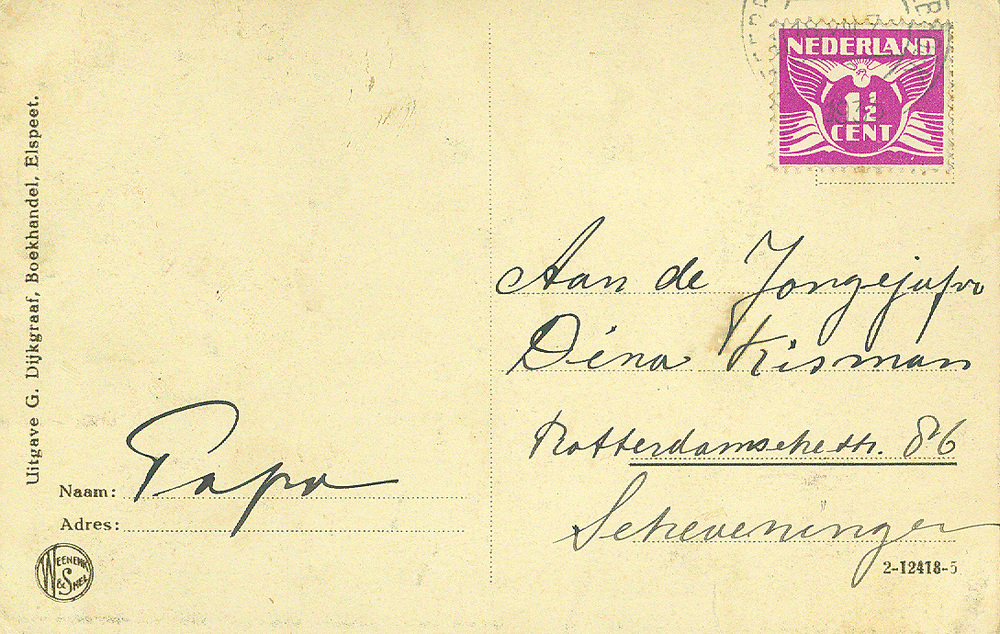 Uitgave G. Dijkgraaf, Boekhandel, Elspeet.
Naam: Papa
Adres:
WEENENK & SNEL
NEDERLAND
1½
CENT
Aan de Jongejufvr
Dina Kisman
Rotterdamschestr. 86
Scheveningen
2-12418-5